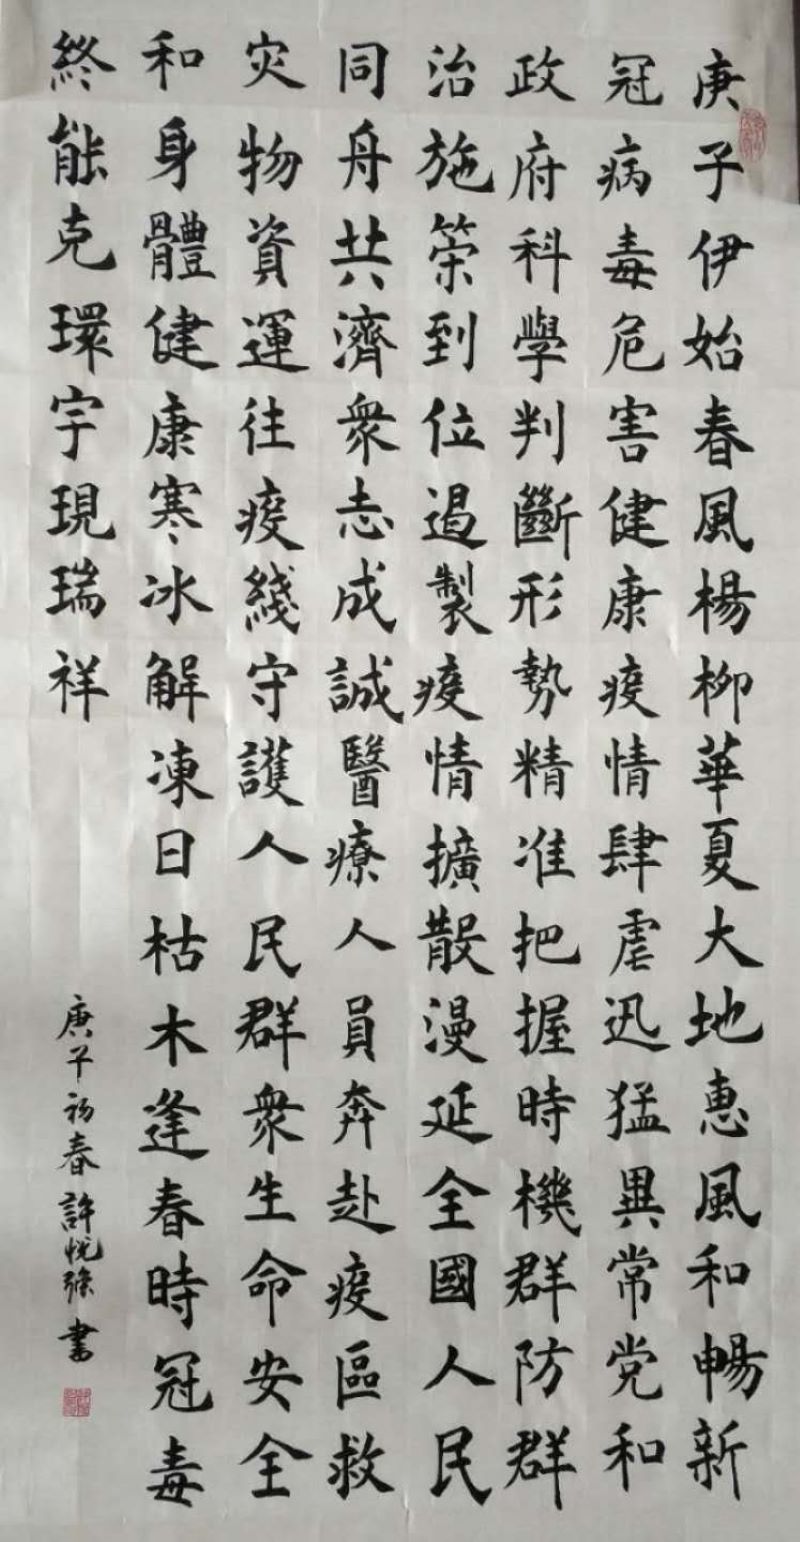 庚子伊始春風楊柳華夏大地惠風和暢新
冠病毒危害健康疫情肆虐迅猛異常党和
政府科學判斷形勢精准把握時機群防群
治施策到位遏製疫情擴散漫延全國人民
同舟共濟衆志成誠醫療人員奔赴疫區救
灾物資運往疫綫守護人民群衆生命安全
和身體健康寒冰解凍日枯木逢春時冠毒
終能克環宇現瑞祥
庚子初春許悅強書